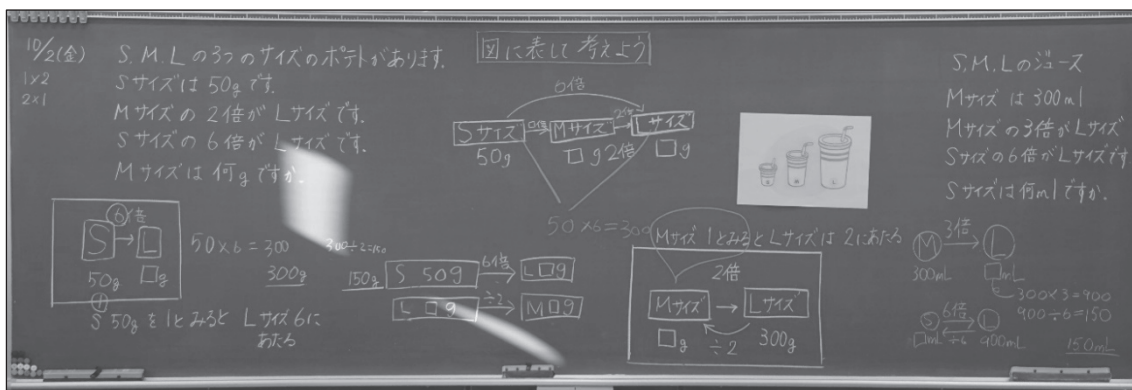 10/2(金)
1×2
2×1
S.M.Lの3つのサイズのポテトがあります.
Sサイズは 50gです.
Mサイズの 2倍が Lサイズです.
Sサイズの 6倍が Lサイズです.
Mサイズは 何gですか.
6倍
S→L
50g □g
S 50gを1とみると Lサイズ6に
あたる
50×6=300
300g
300÷2=150
150g
図に表して考えよう
6倍
Sサイズ→Mサイズ→Lサイズ
2倍
50g □g 2倍 □g
50×6=300
S 50g 6倍→ L□g
L □g ÷2→ M□g
Mサイズ 1とみるとLサイズは 2にあたる
2倍
Mサイズ→Lサイズ
□g ÷2 300g
S,M,Lのジュース
Mサイズは 300ml
Mサイズの3倍がLサイズ
Sサイズの6倍がLサイズです
Sサイズは何mlですか.
M 3倍→ L
300mL □mL
300×3=900
900÷6=150
S 6倍 L
□mL ÷6 900mL
150mL